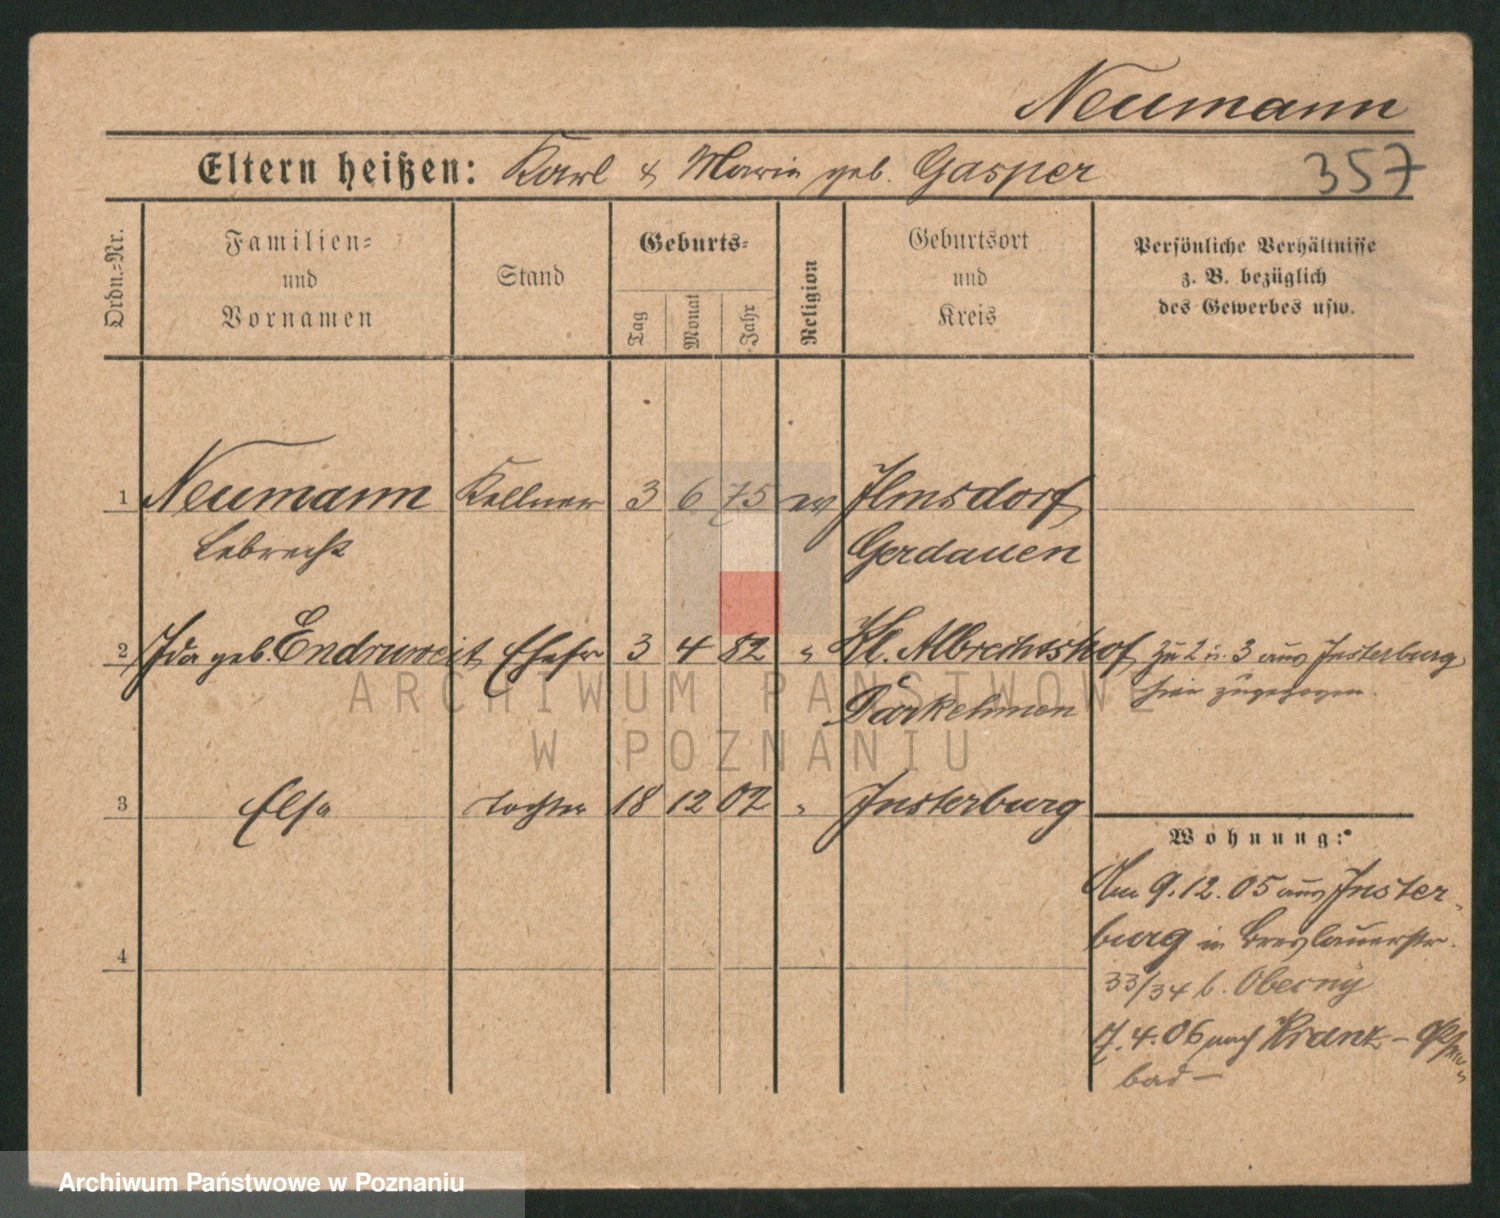 Neumann
Eltern heißen: Karl & Marie geb. Gasper
357
Ordn.-Nr.
Familien-
und
Vornamen
Stand
Geburts-
Tag
Monat
Jahr
Religion
Geburtsort
und
Kreis
Persönliche Verhältnisse
z. B. bezüglich
des Gewerbes usw.
1 Neumann Kellner 3 6 75 ev Ilmsdorf
Lebrecht Gerdauen
2 Ida geb. Endruweit Ehefr 3 4 82 " Kl. Albrechtshof zu 2 u. 3 aus Insterburg
Darkehmen hier zugezogen.
ARCHIWUM PAŃSTWOWE
W POZNANIU
3 Else Tochter 18 12 02 " Insterburg
Wohnung:
Am 9.12.05 aus Inster-
burg in Breslauerstr.
4
33/34 b. Oberny
7.4.06 nach Kranz -
bad -
Archiwum Państwowe w Poznaniu